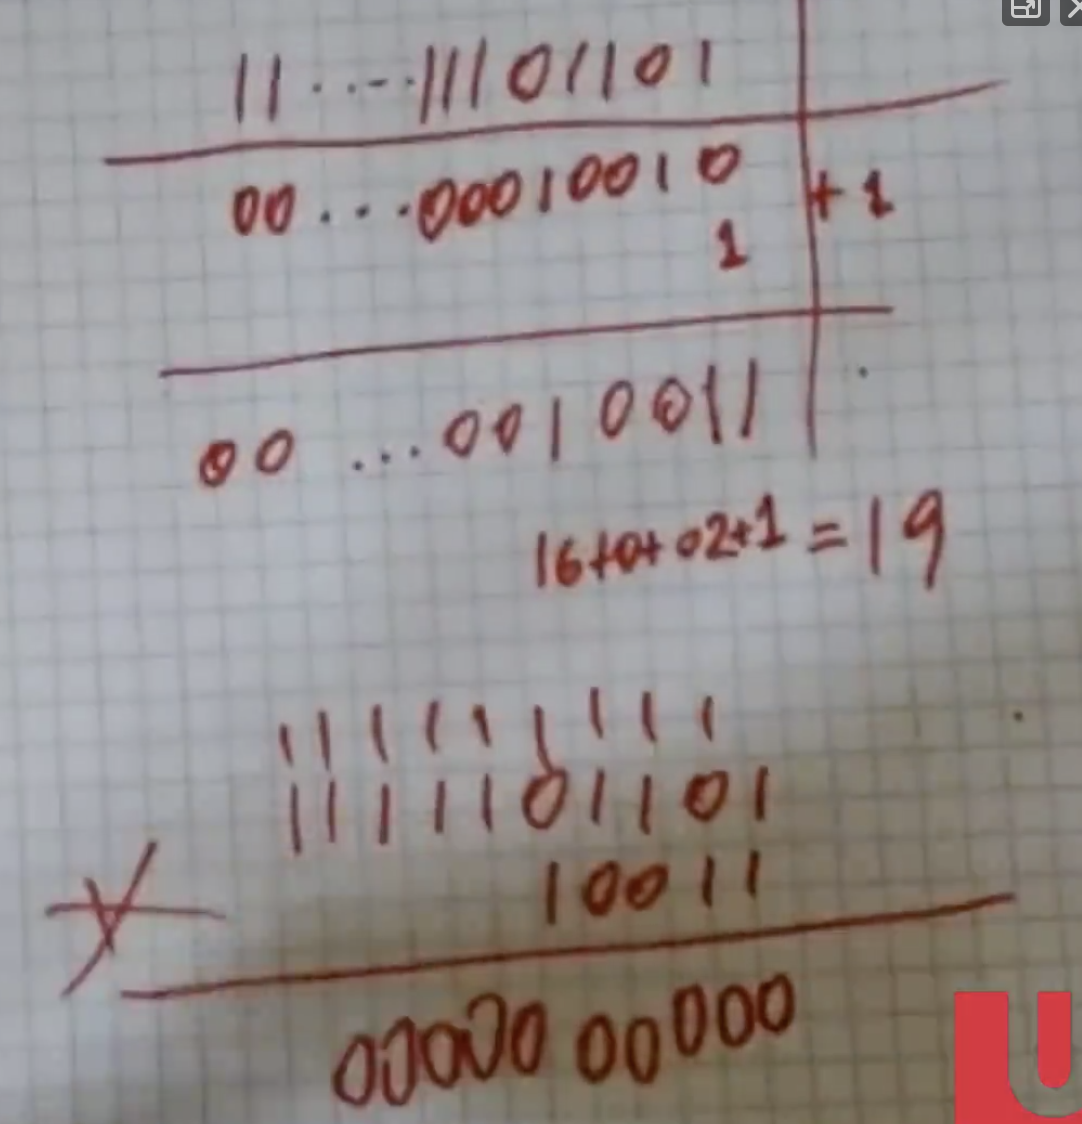 11 . . - - . 111 0 1 1 0 1
00 . . . . 000 1 00 1 0 + 1
1
00 ... 00 1 00 1 1
16+0+02+1 = 19
1 1 1 1 1 1 1 1 1
1 1 1 1 1 0 1 1 0 1
1 0 0 1 1
0000000000
U